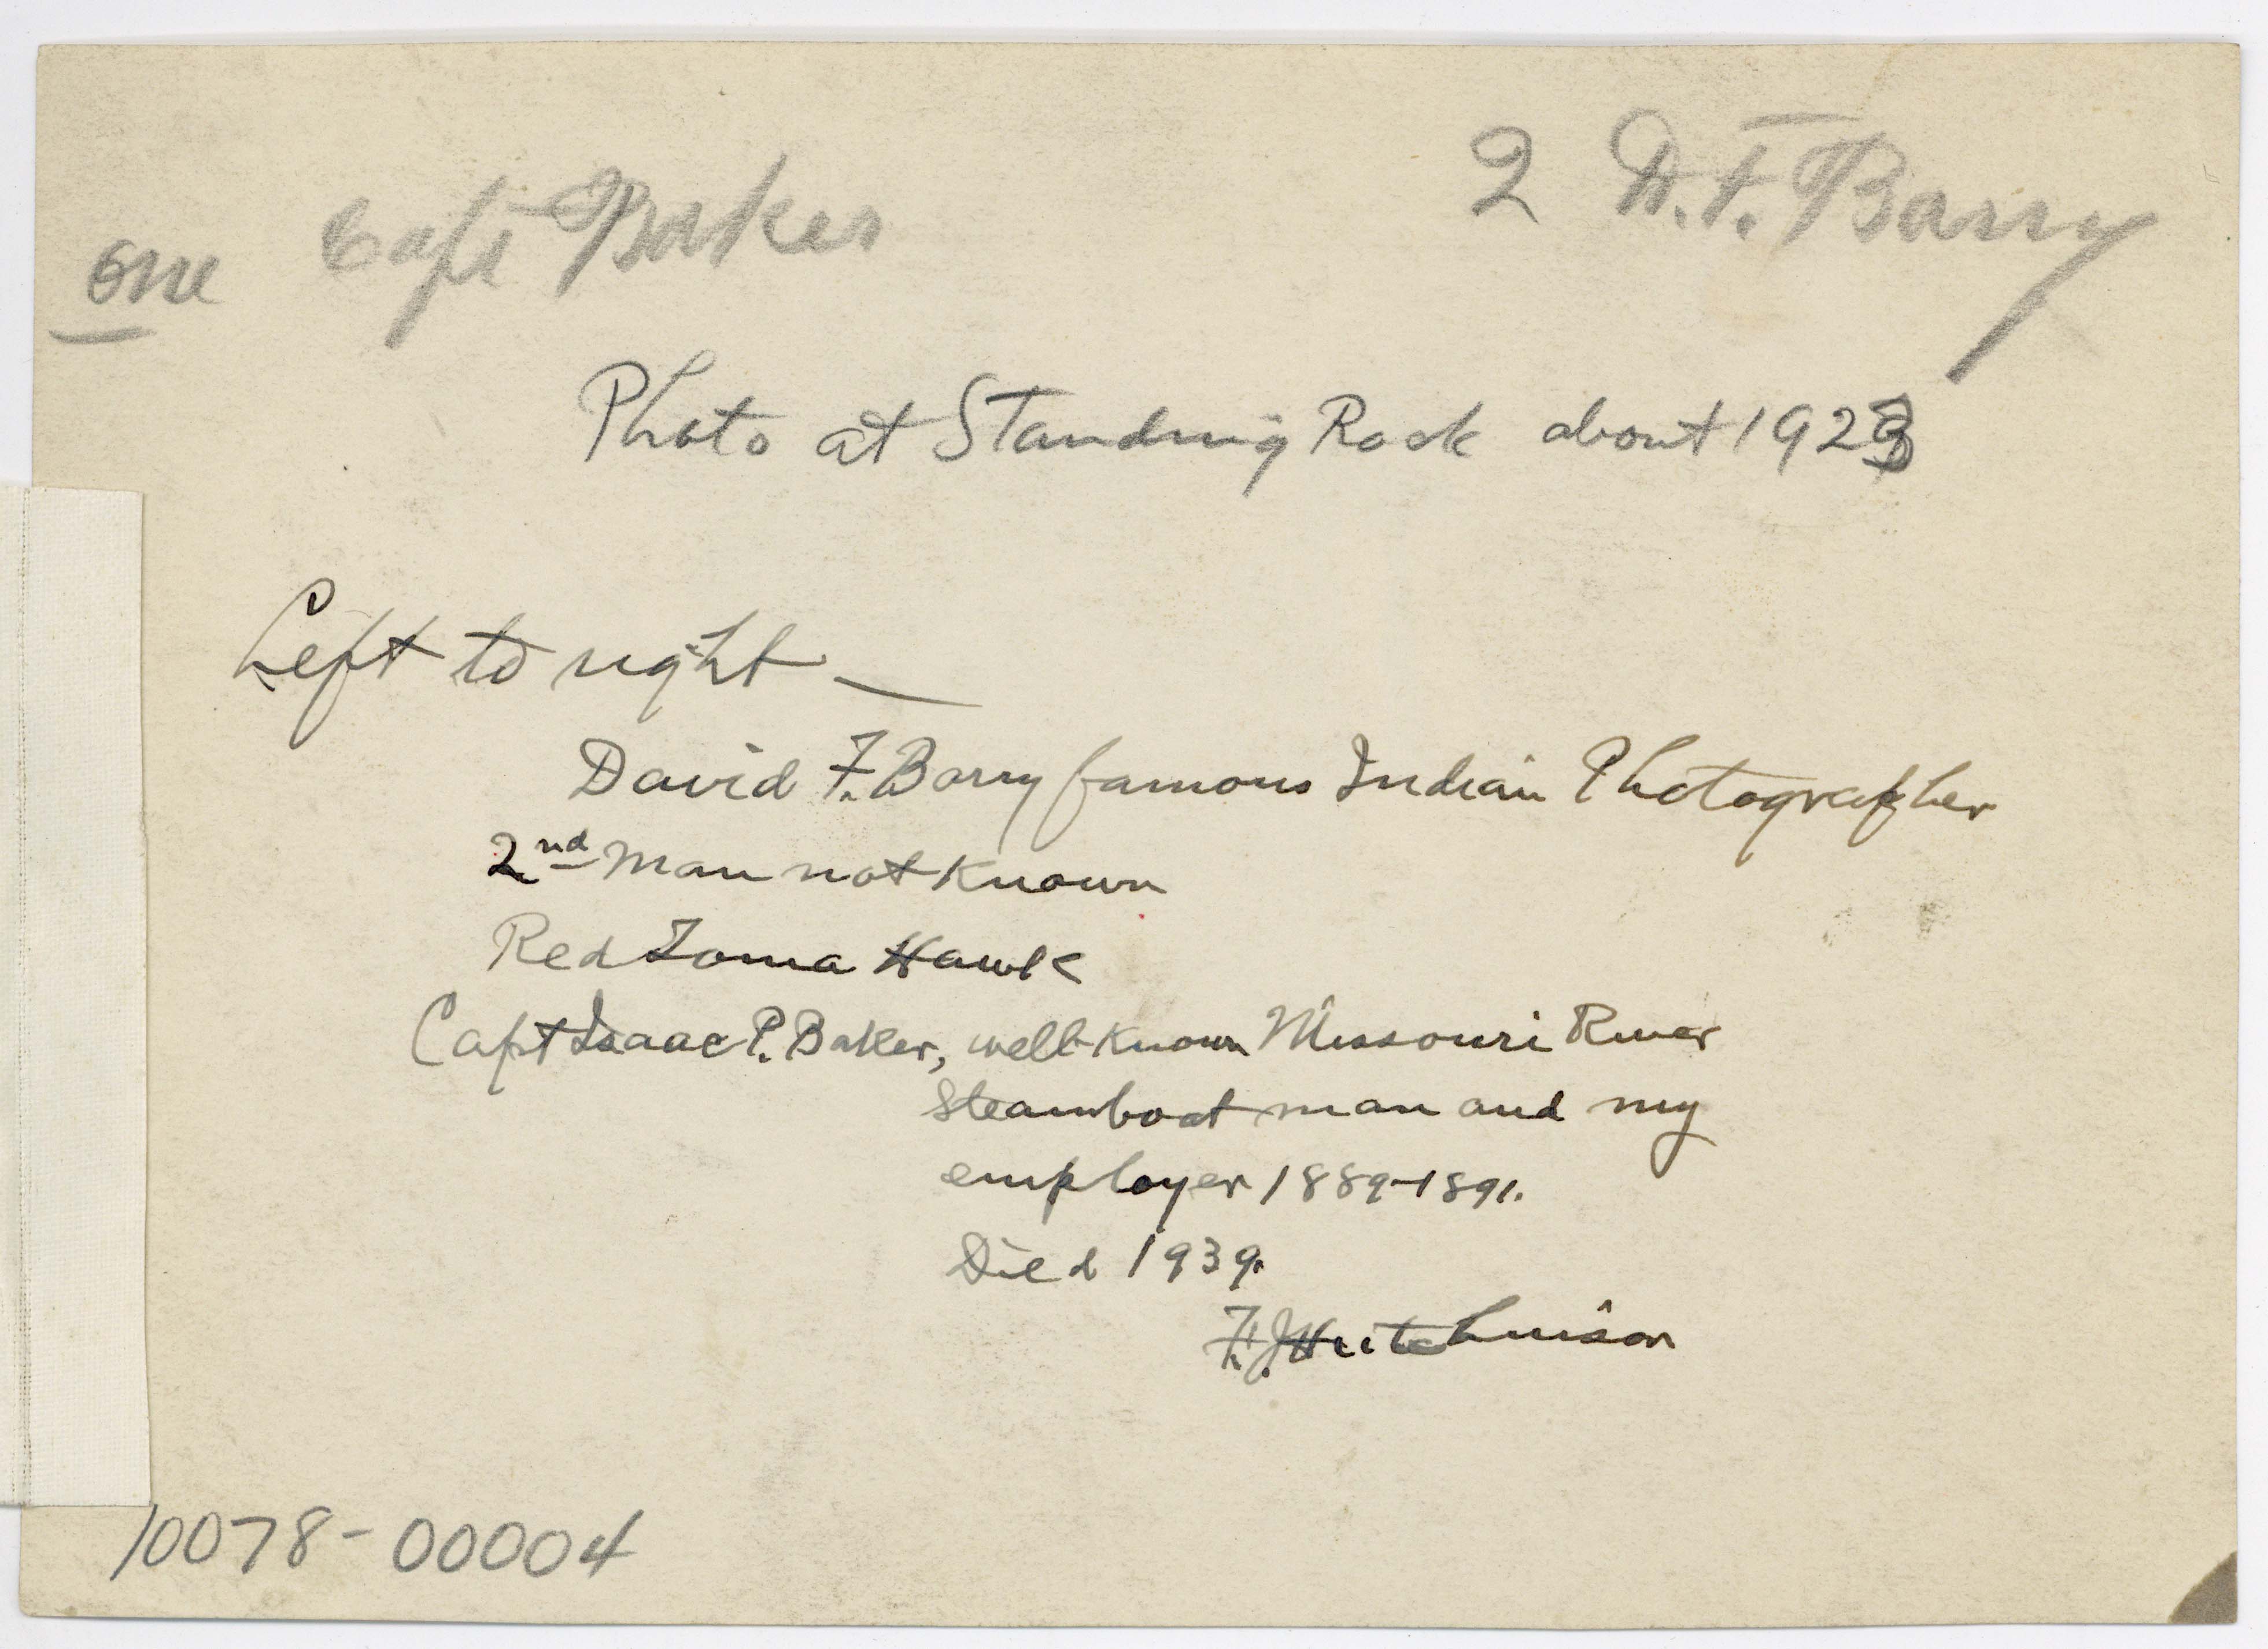 one Capt Baker 2 D.F. Barry
Photo at Standing Rock about 1923
Left to right —
David F. Barry famous Indian Photographer
2nd man not known
Red Toma Hawk
Capt Isaac P. Baker, well-known Missouri River
steamboat man and my
employer 1889-1891.
Died 1939.
F.J. Hutchinson
10078-00004